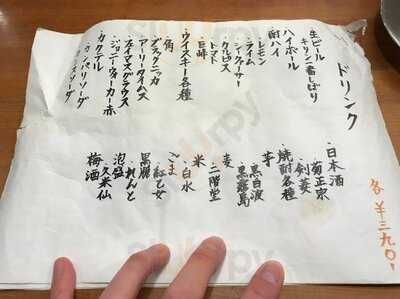 ドリンク
生ビール
キリン一番しぼり
ハイボール
酎ハイ
・レモン
・ライム
・シークァーサー
・カルピス
・トマト
・巨峰
・ウイスキー各種
・角
・ブラックニッカ
・アーリータイムズ
・フェイマスグラウス
・ジョニーウォーカー赤
・カクテル
・カンパリソーダ
・日本酒
・菊正宗
・剣菱
・焼酎各種
芋
・黒白波
・黒霧島
麦
・二階堂
米
・白水
ごま
・紅乙女
黒糖
・れんと
泡盛
・久米仙
梅酒
各¥390!